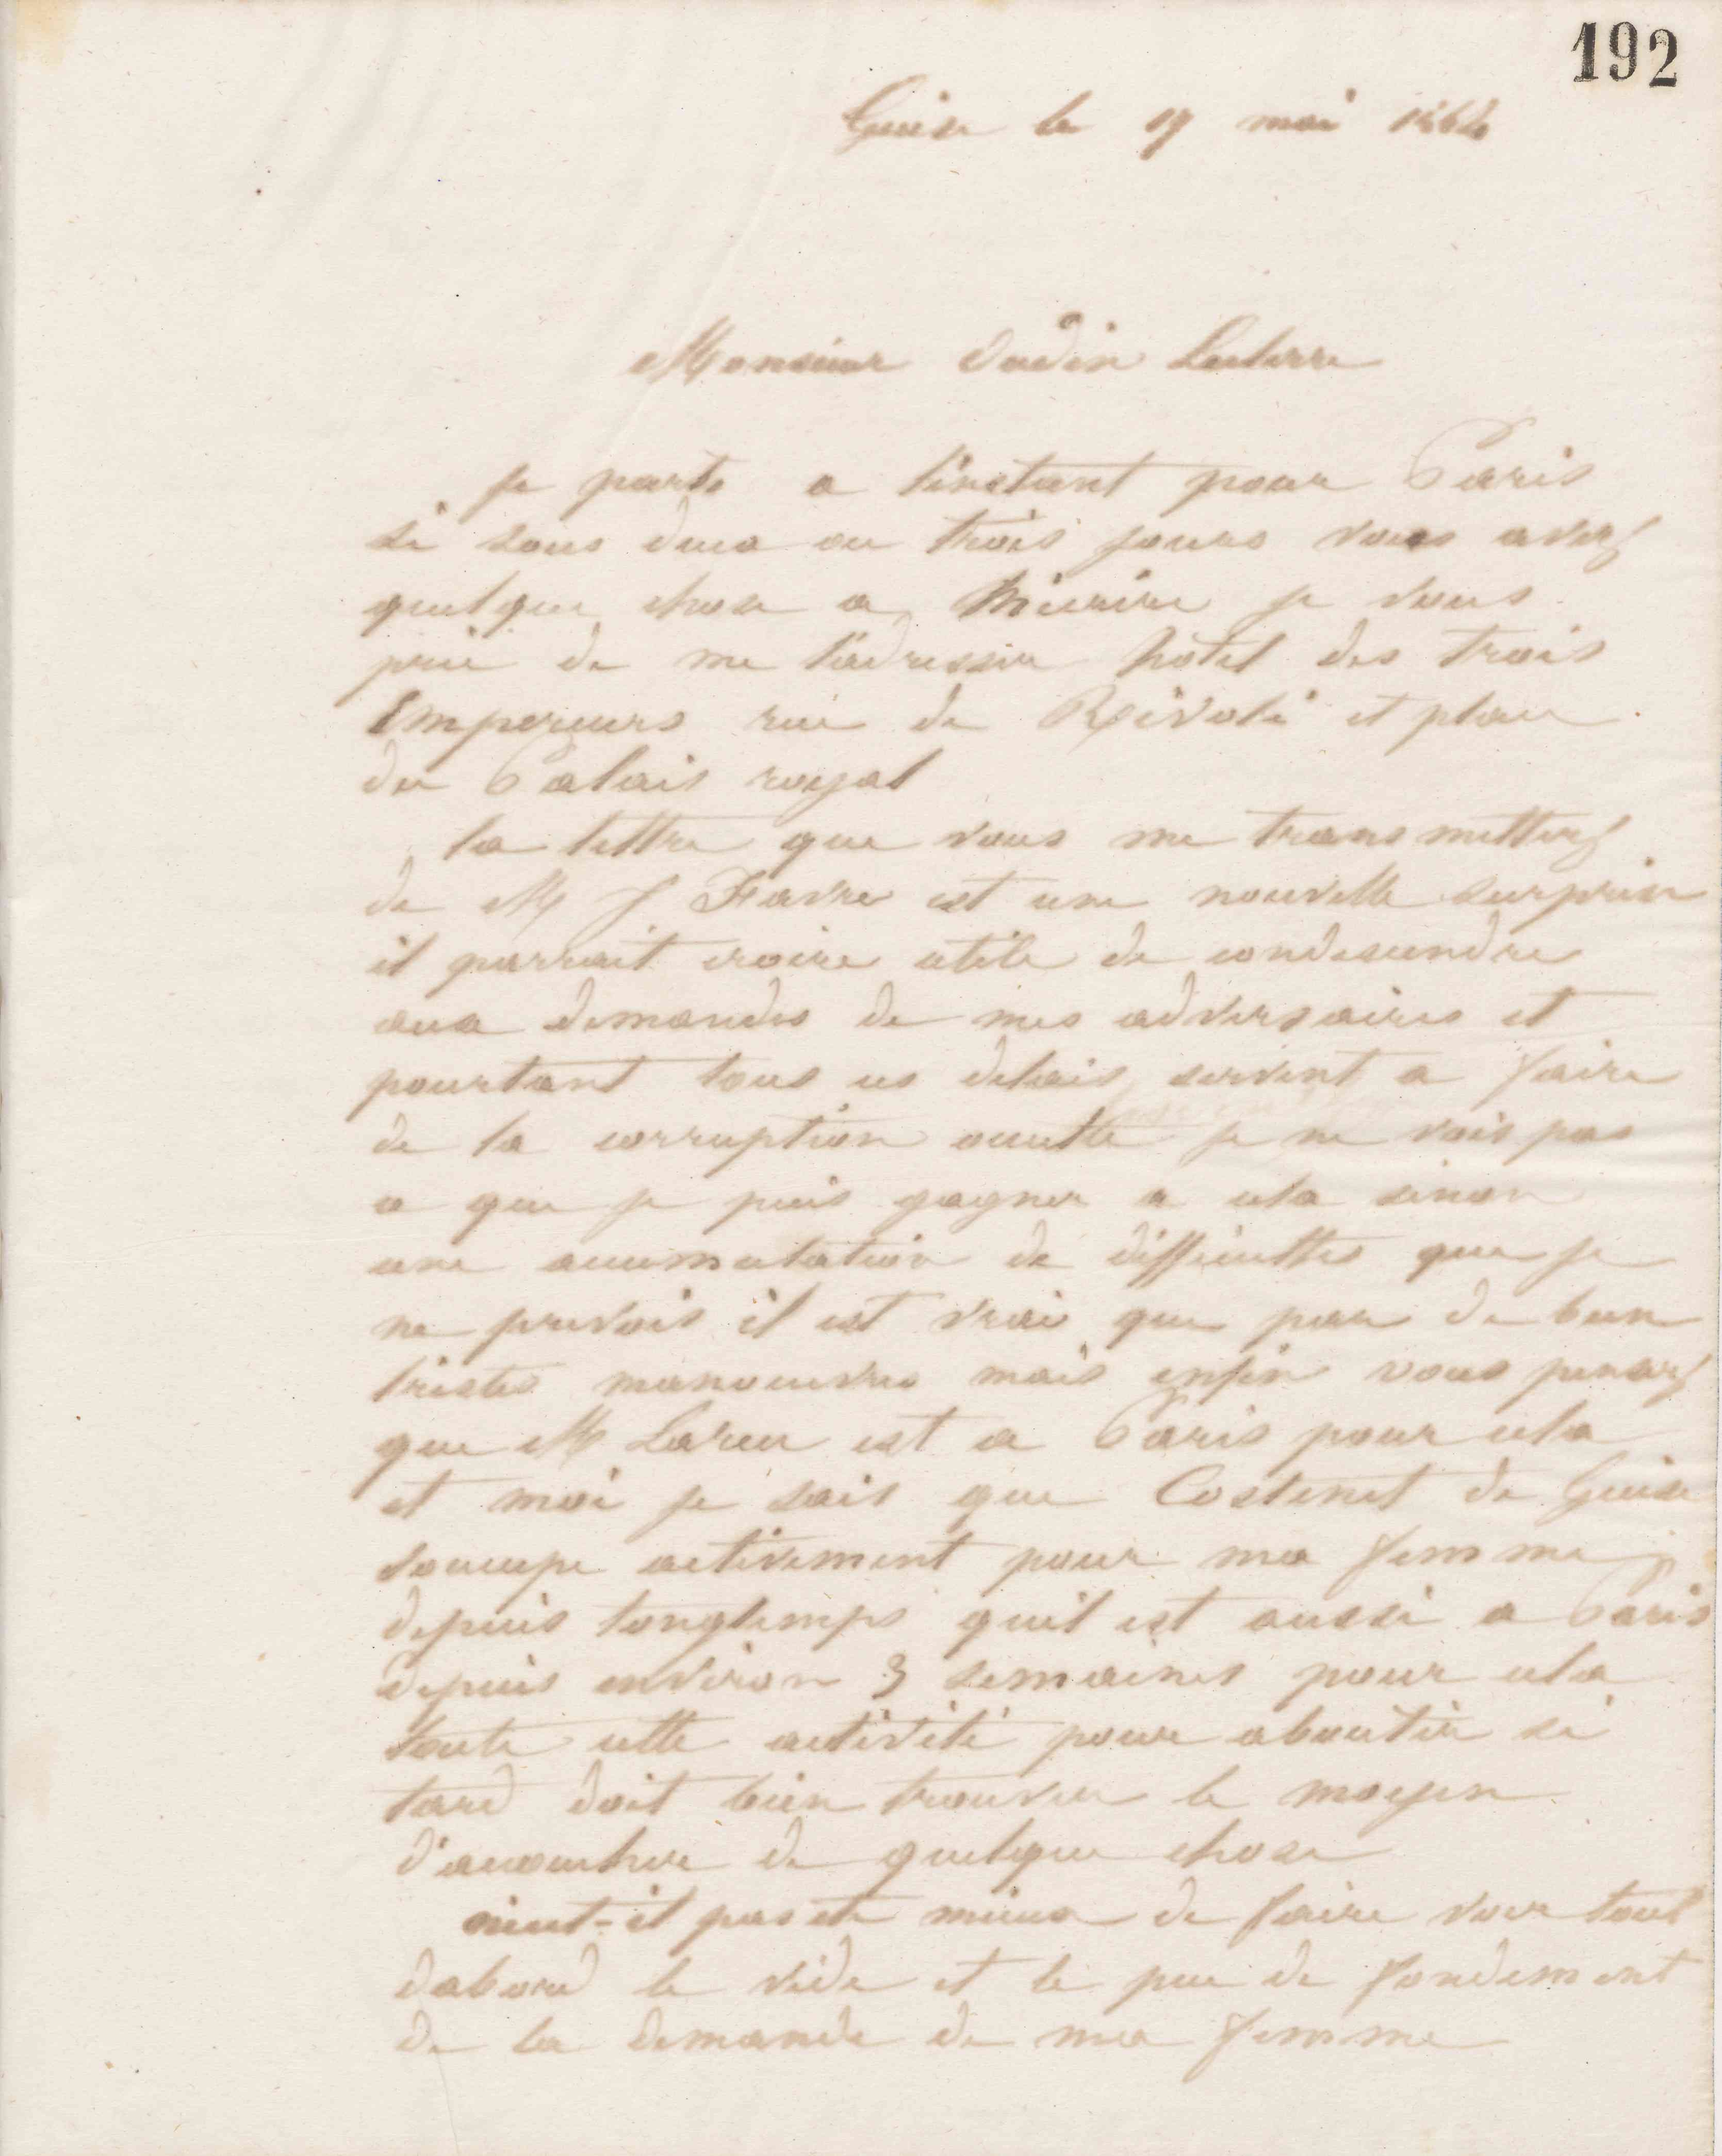 192
Guise le 19 mai 1864
Monsieur Oudin Leclerre
je parts a l'instant pour Paris
si sous deux ou trois jours vous avez
quelque chose a m'ecrire je vous
prie de me l'adresser hotel des trois
Empereurs rue de Rivoli et place
du Palais royal
la lettre que vous me transmettez
de M J Favre est une nouvelle surprise
il parrait croire utile de condescendre
aux demandes de mes adversaires et
pourtant tous ces delais servent a faire
de la corruption occulte je ne vois pas
a que je puis gagner a cela sinon
une accumulation de difficultes que je
ne prevois il est vrai que par de bien
tristes manoeuvres mais enfin vous pensez
que M Lareu est a Paris pour cela
et moi je sais que Costenet de Guise
soccupe activement pour ma femme
depuis longtemps quil est aussi a Paris
depuis environ 3 semaines pour cela
toute cette activité pour aboutir si
tard doit bien trouver le moyen
d'accoucher de quelque chose
nieut-il pas ete mieux de faire voir tout
dabord le vide et le peu de fondement
de la demande de ma femme